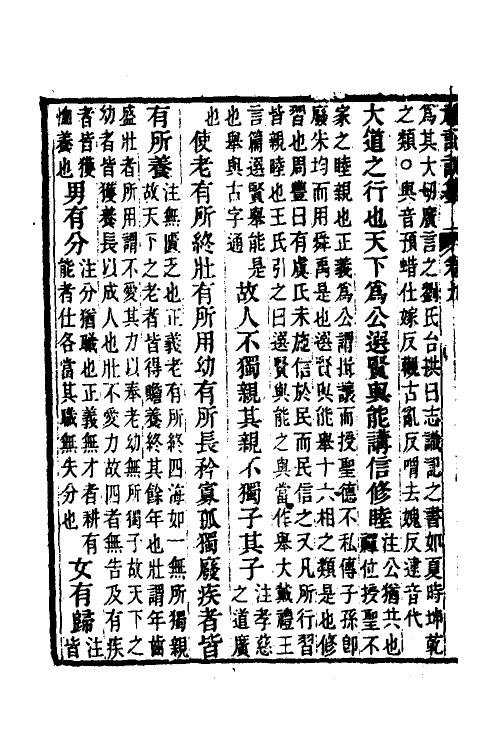 禮記訓纂 卷九
爲其大切廣言之劉氏台拱曰志識記之書如夏時坤乾
之類○與音預蜡仕嫁反觀古亂反喟去媿反逮音代
大道之行也天下爲公選賢與能講信修睦
注公猶共也
禪位授聖不
家之睦親也正義爲公謂揖讓而授聖德不私傳子孫卽
廢朱均而用舜禹是也選賢與能舉十六相之類是也修
習也周豊曰有虞氏未施信於民而民信之又凡所行習
皆親睦也王氏引之曰選賢與能之與當作舉大戴禮王
言篇選賢舉能是
也舉與古字通
故人不獨親其親不獨子其子
注孝慈
之道廣
也
使老有所終壯有所用幼有所長矜寡孤獨廢疾者皆
有所養
注無匱乏也正義老有所終四海如一無所獨親
故天下之老者皆得贍養終其餘年也壯謂年齒
盛壯者所用謂不愛其力以奉老幼故無所獨子故天下之
幼者皆獲養長以成人也壯不愛力故四者無告及有疾
者皆獲
恤養也
男有分
注分猶職也正義無才者耕有
能者仕各當其職無失分也
女有歸
注
皆